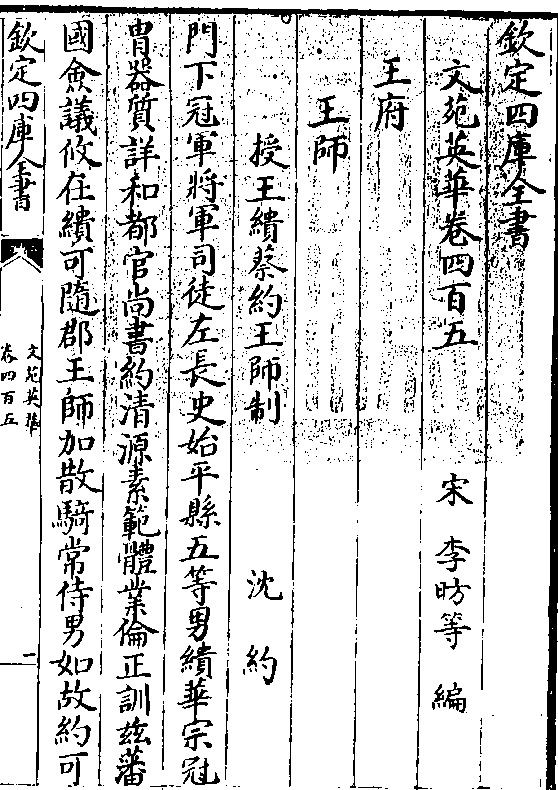 欽定四庫全書
文苑英華卷四百五
宋 李昉等 編
王府
王師
授王繢蔡約王師制
沈約
門下冠軍將軍司徒左長史始平縣五等男繢華宗冠
胄器質詳和都官尚書約清源素範體業倫正訓兹蕃
國僉議攸在繢可隨郡王師加散騎常侍男如故約可
欽定四庫全書
文苑英華
卷四百五
一